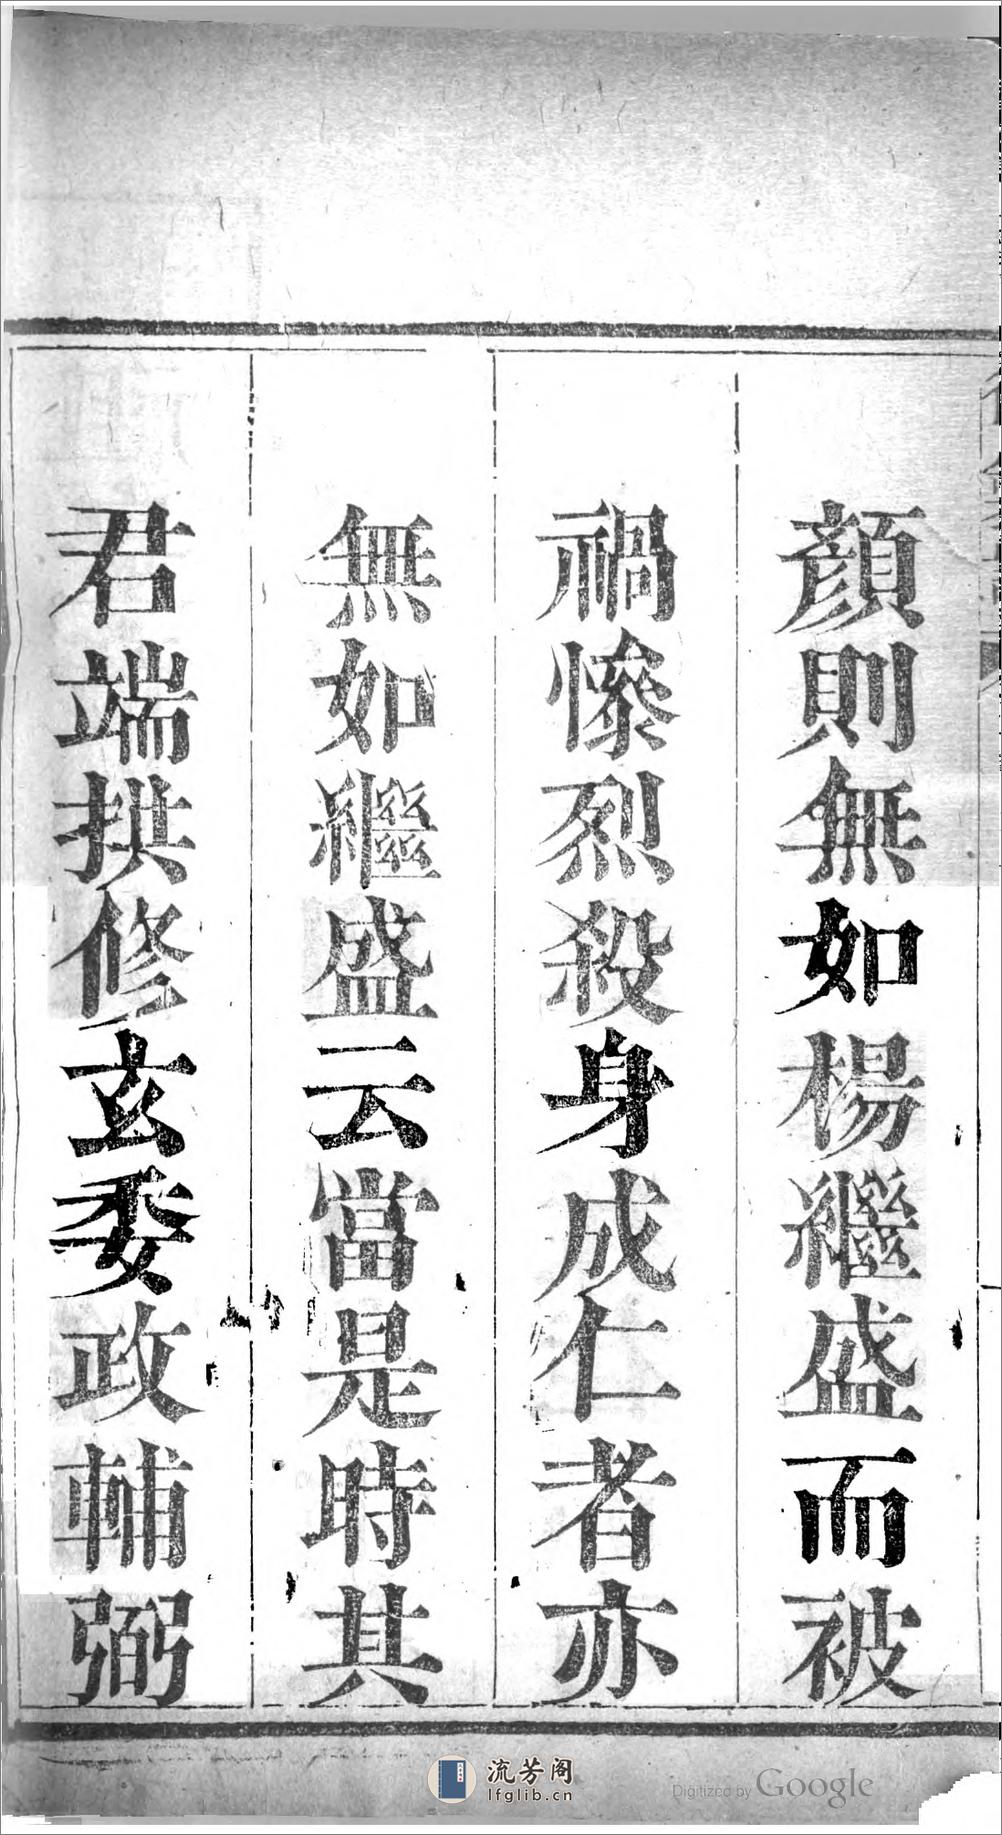 顏則無如楊繼盛而被
禍慘烈殺身成仁者亦
無如繼盛云當是時其
君端拱修玄委政輔弼
流芳阁
lfglib.cn
Digitized by Google